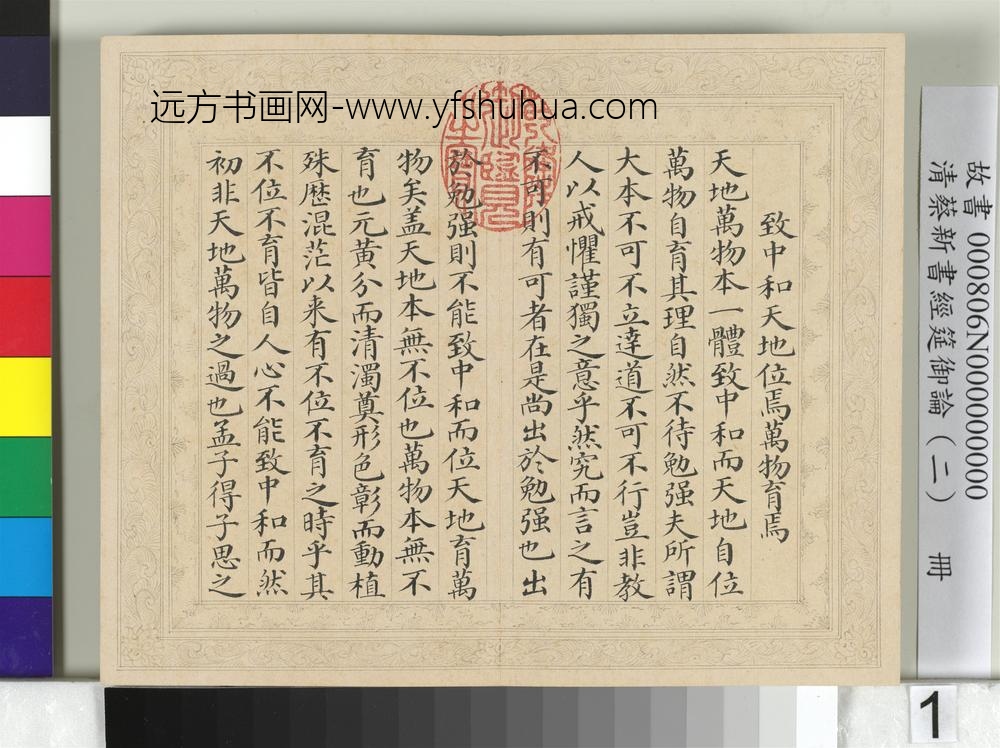 远方书画网-www.yfshuhua.com
致中和天地位焉萬物育焉
天地萬物本一體致中和而天地自位
萬物自育其理自然不待勉强夫所謂
大本不可不立達道不可不行豈非教
人以戒懼謹獨之意乎然究而言之有
不可則有可者在是尚出於勉强也出
於勉强則不能致中和而位天地育萬
物矣盖天地本無不位也萬物本無不
育也元黄分而清濁奠形色彰而動植
殊歷混茫以来有不位不育之時乎其
不位不育皆自人心不能致中和而然
初非天地萬物之過也孟子得子思之
故書 000806N000000000
清蔡新書經筵御論（二） 冊
1